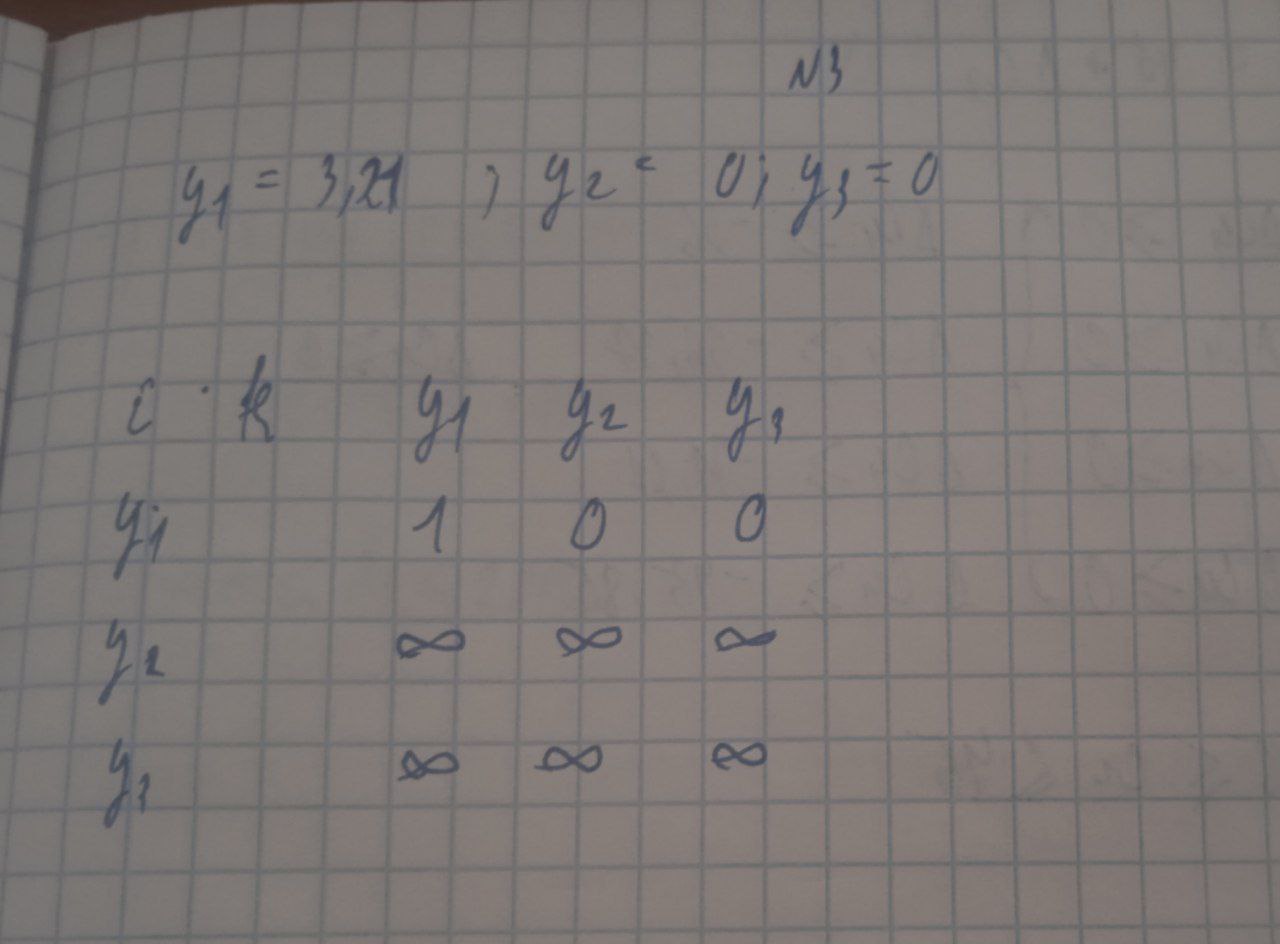 N3
y1 = 3,21 ; y2 = 0; y3 = 0
i · k y1 y2 y3
y1 1 0 0
y2 ∞ ∞ ∞
y3 ∞ ∞ ∞